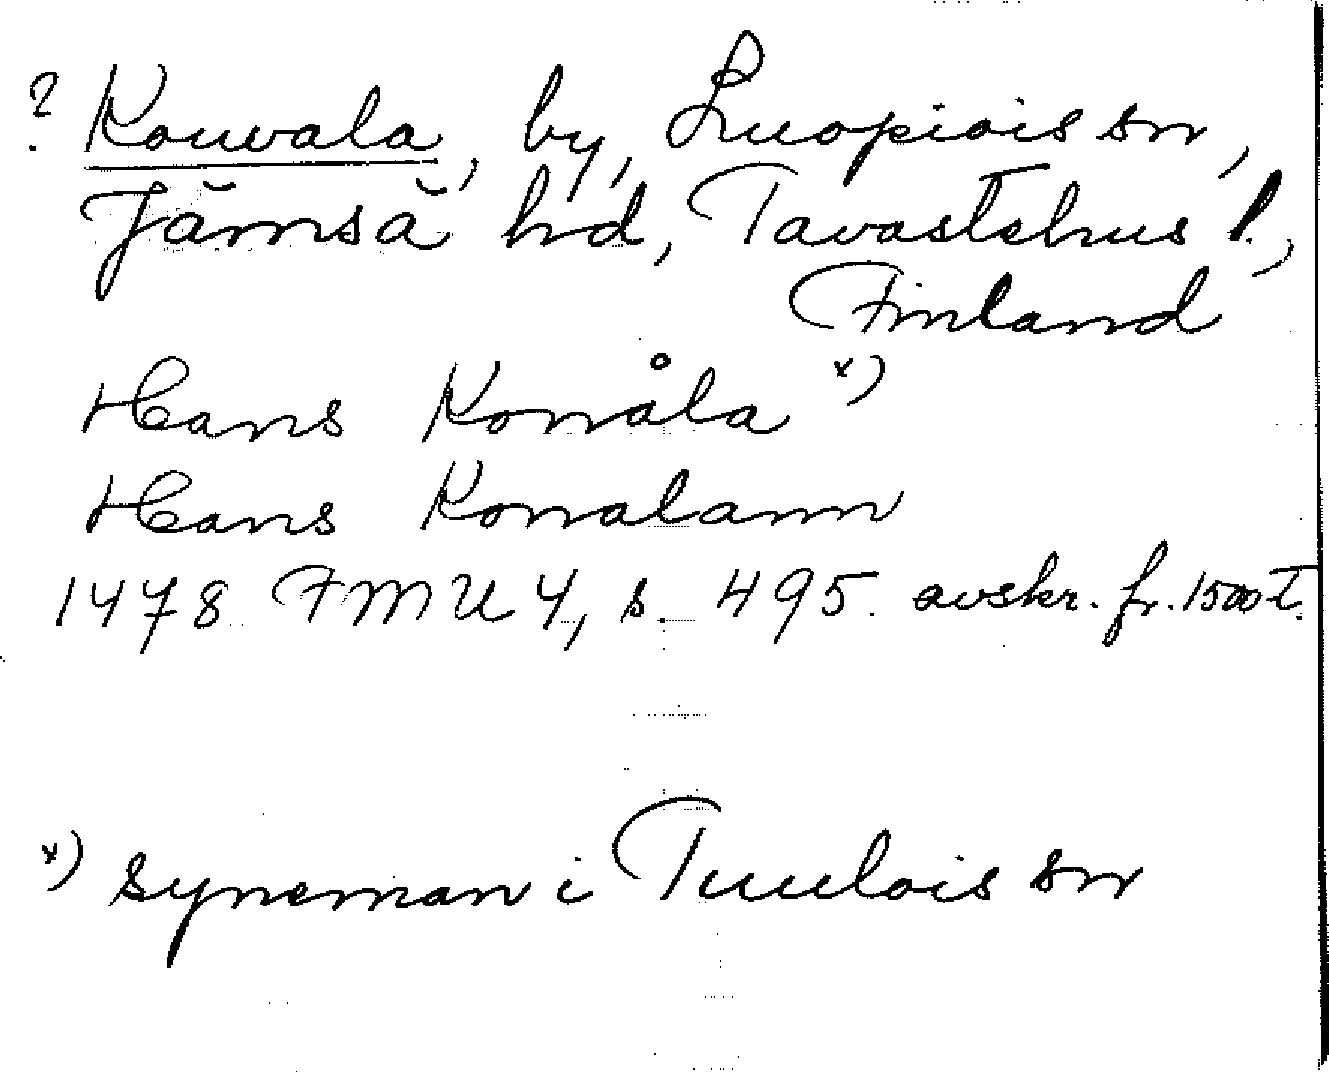 ? Kouvala, by, Luopiois sn,
Jämsä hd, Tavastehus l.,
Finland
Hans Konåla x)
Hans Konalann
1478 FMU 4, s. 495. avskr. fr. 1500 t.
x) syneman i Tuulois sn